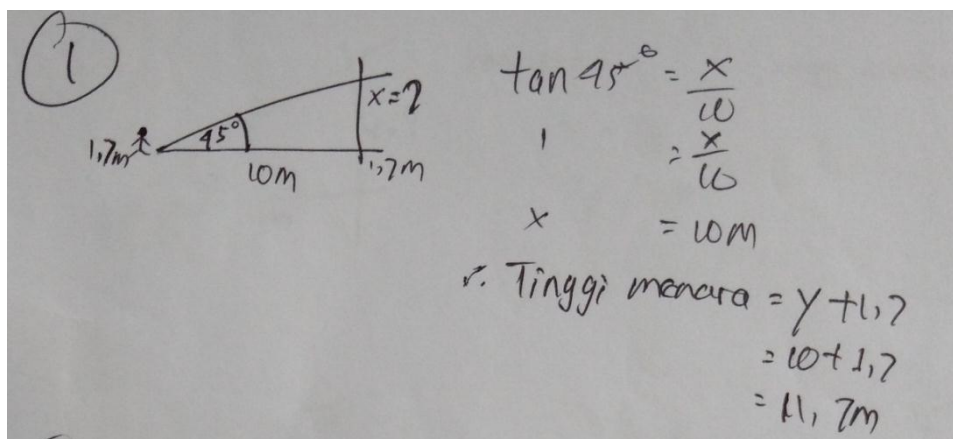 1
x=?
1,7m 45°
10m 1,7m
tan 45° = x/10
1 = x/10
x = 10m
∴ Tinggi menara = y + 1,7
= 10 + 1,7
= 11,7m